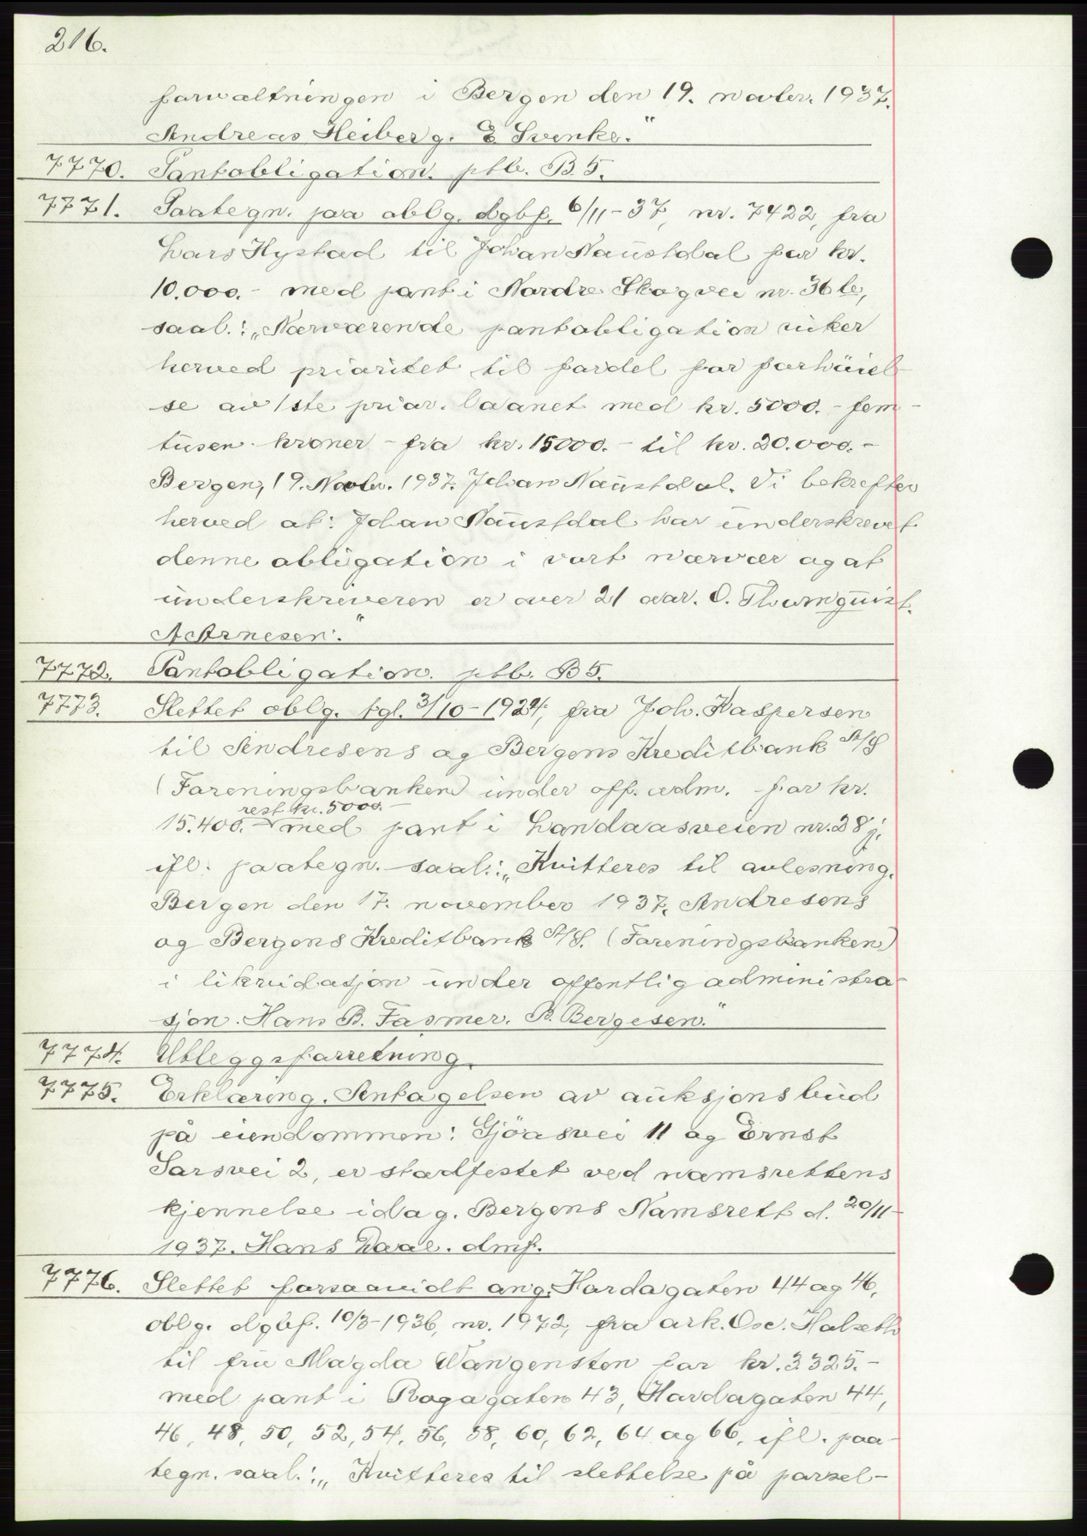 216.
forvaltningen i Bergen den 19. novbr. 1937.
Andreas Heiberg. E Svenke."
7770. Pantobligation. ptb. B 5.
7771. Paategn. paa oblg. dgbf. 6/11-37, nr. 7422, fra
Lars Hystad til Johan Naustdal for kr.
10.000.- med pant i Nordre Skogvei nr. 36 b,
saal.: „Nærværende pantobligation viker
herved prioritet til fordel for forhøiel-
se av 1ste prior. laanet med kr. 5000.- fem-
tusen kroner - fra kr. 15000.- til kr. 20.000.-
Bergen, 19. Novbr. 1937. Johan Naustdal. Vi bekrefter
herved at: Johan Naustdal har underskrevet
denne obligation i vort nærvær og at
underskriveren er over 21 aar. O. Thurnquist.
A Arnesen."
7772. Pantobligation. ptb. B 5.
7773. Slettet oblg. tgl. 3/10-1924, fra Joh. Kaspersen
til Andresens og Bergens Kreditbank A/S
(Foreningsbanken) under off. adm. for kr.
rest kr. 5000.-
15.400.- med pant i Landaasveien nr. 28 j,
ifl. paategn. saal.: „Kvitteres til avlesning.
Bergen den 17. november 1937. Andresens
og Bergens Kreditbank A/S. (Foreningsbanken)
i likvidasjon under offentlig administra-
sjon. Hans B. Fasmer. B. Bergesen."
7774. Utleggsforretning.
7775. Erklæring. Antagelsen av auksjonsbud
på eiendommen: Gjøasvei 11 og Ernst
Sarsvei 2, er stadfestet ved namsrettens
kjennelse idag. Bergens Namsrett d. 20/11-
1937. Hans Daae. dmf.
7776. Slettet forsaavidt ang. Hordagaten 44 og 46,
oblg. dgbf. 10/3-1936, nr. 1972, fra ark. Osc. Halseth
til fru Magda Wangensten for kr. 3325.-
med pant i Rogagaten 43, Hordagaten 44,
46, 48, 50, 52, 54, 56, 58, 60, 62, 64 og 66, ifl. paa-
tegn. saal.: „Kvitteres til slettelse på parsel-